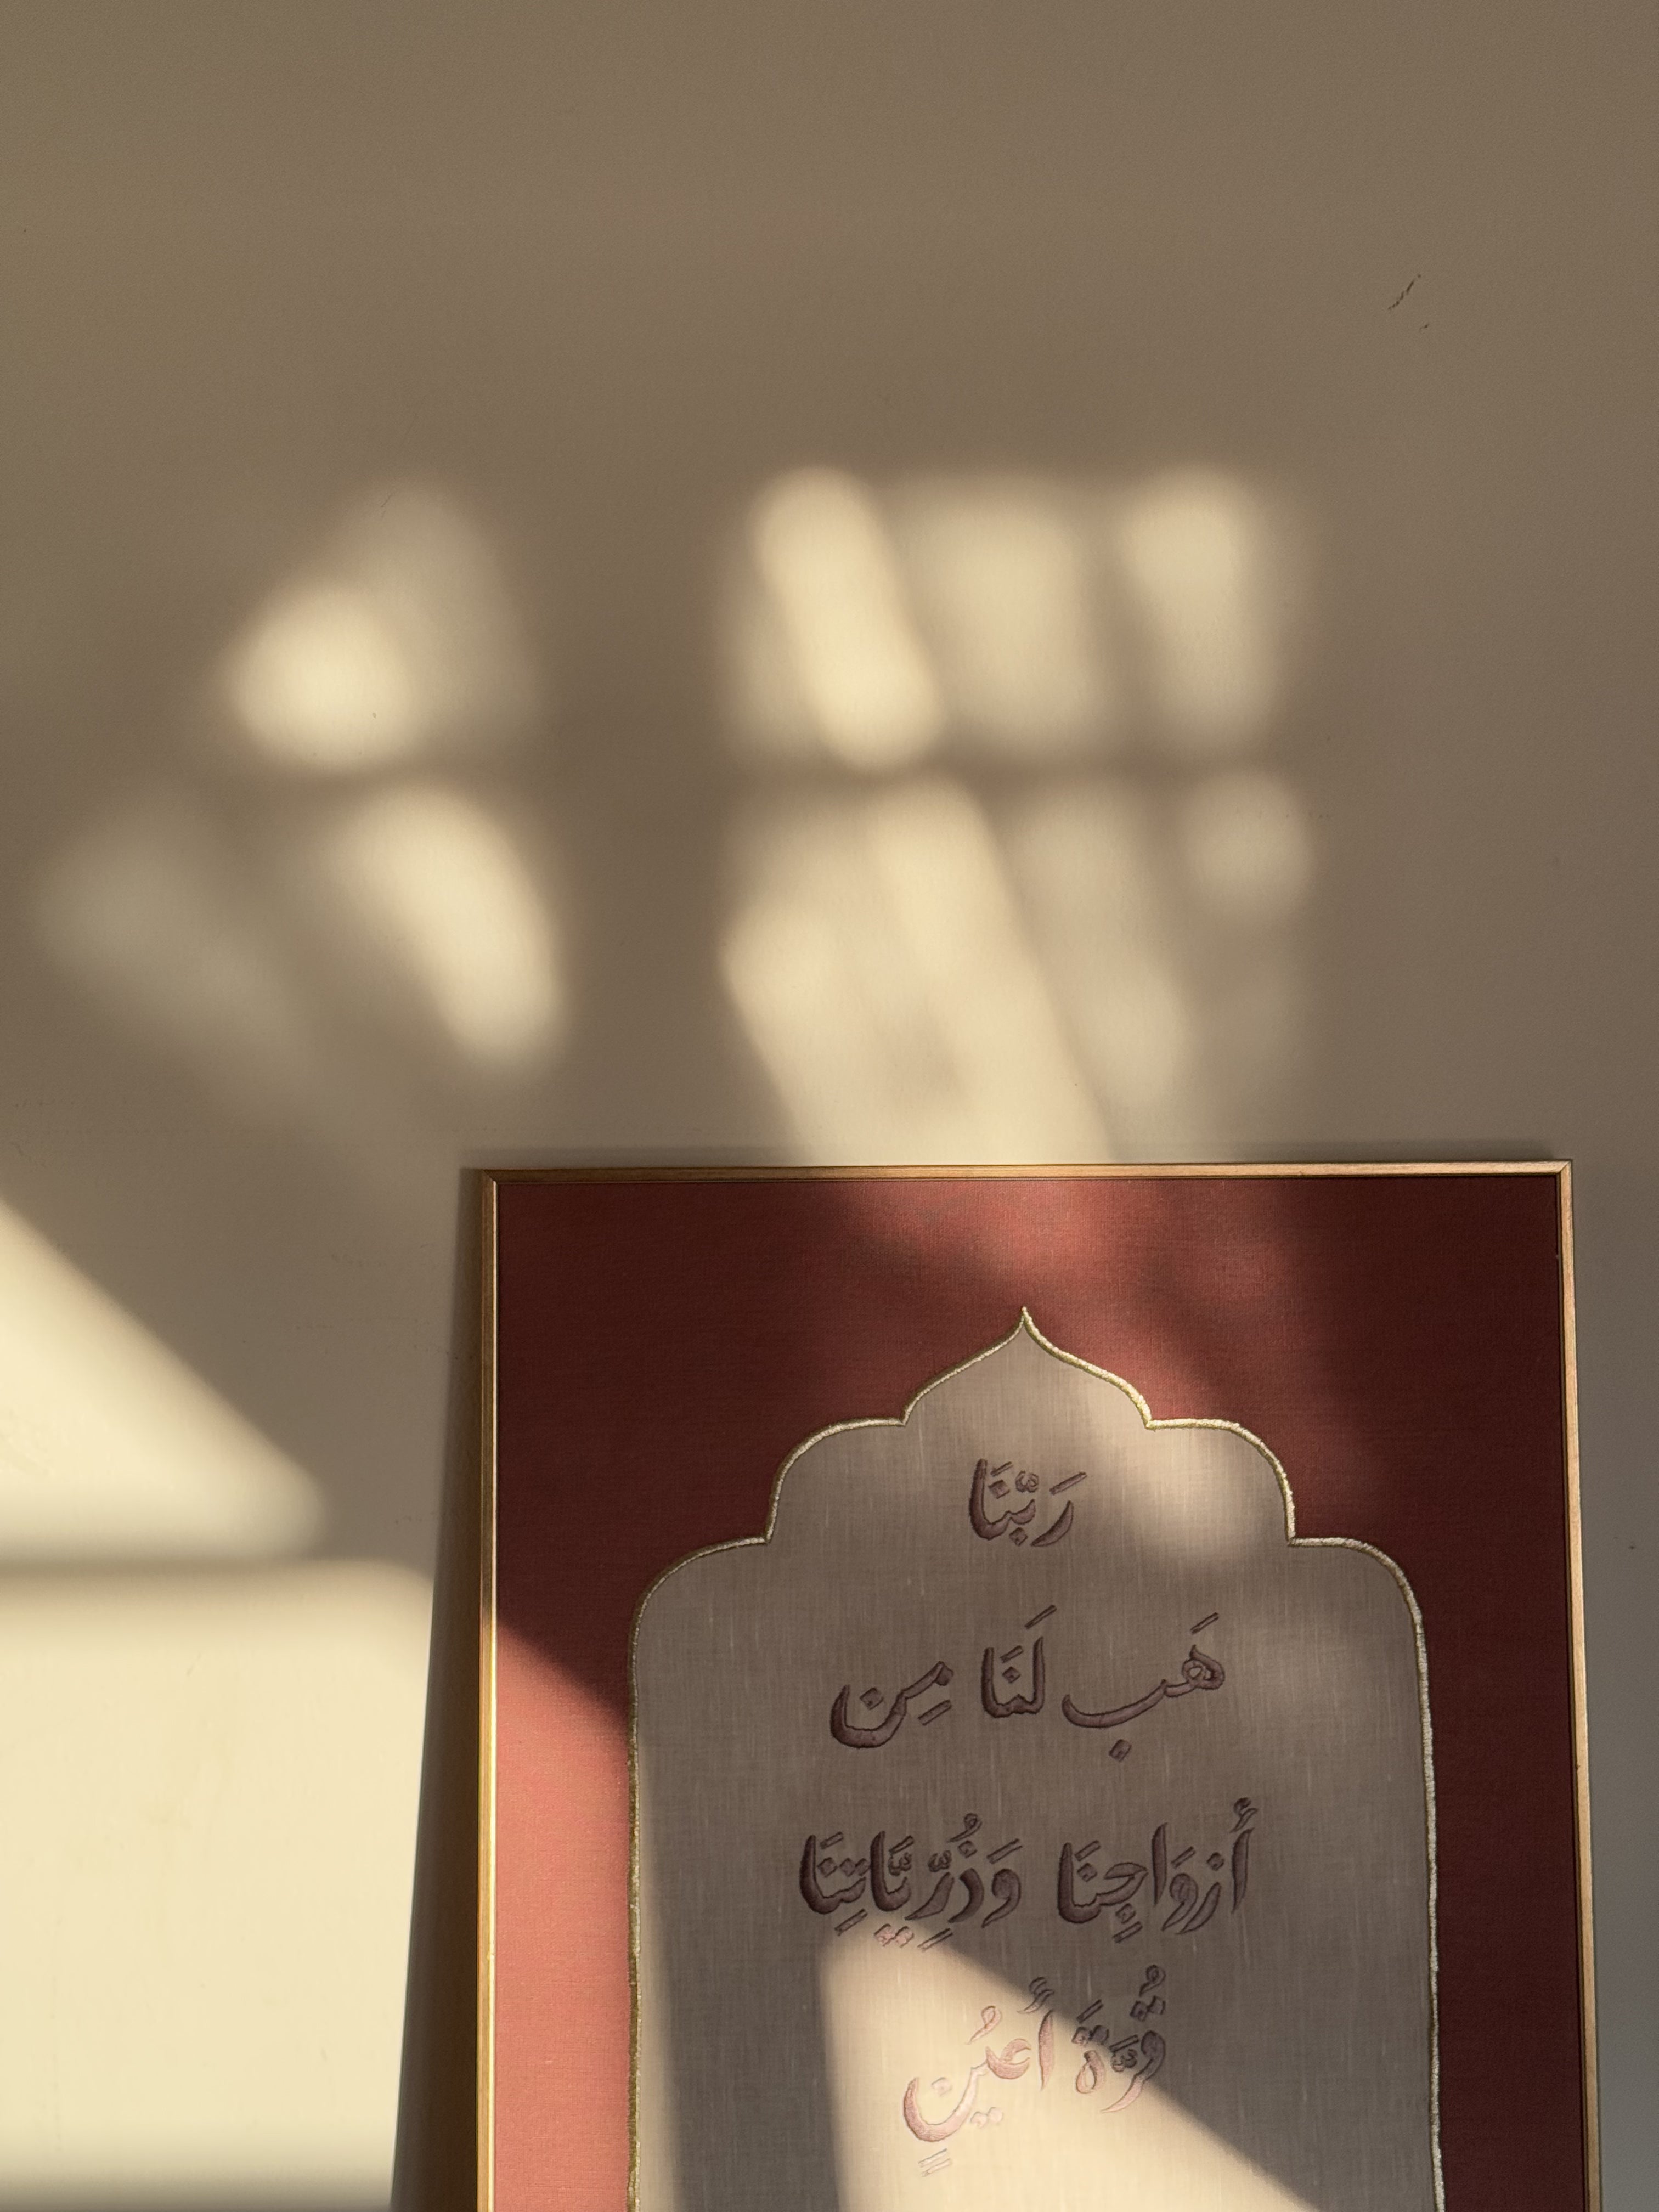 رَبَّنَا
هَب لَنَا مِن
أَزوَاجِنَا وَذُرِّيَّاتِنَا
قُرَّةَ أَعيُنٍ